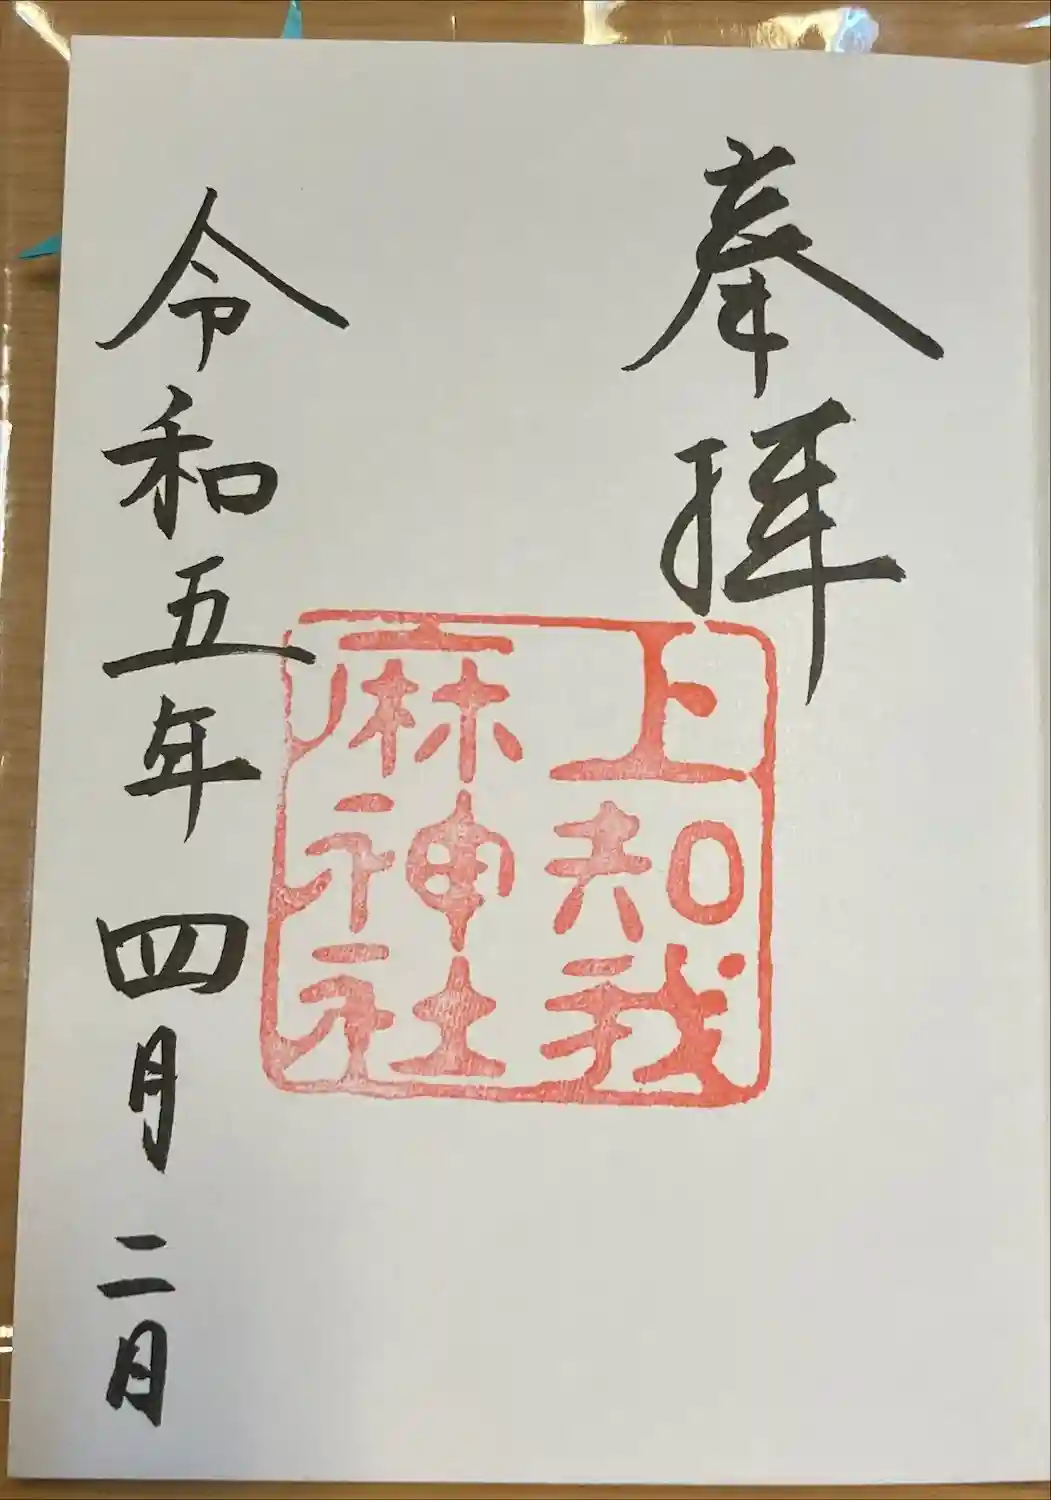 奉拝
上知我
麻神社
令和五年四月二月